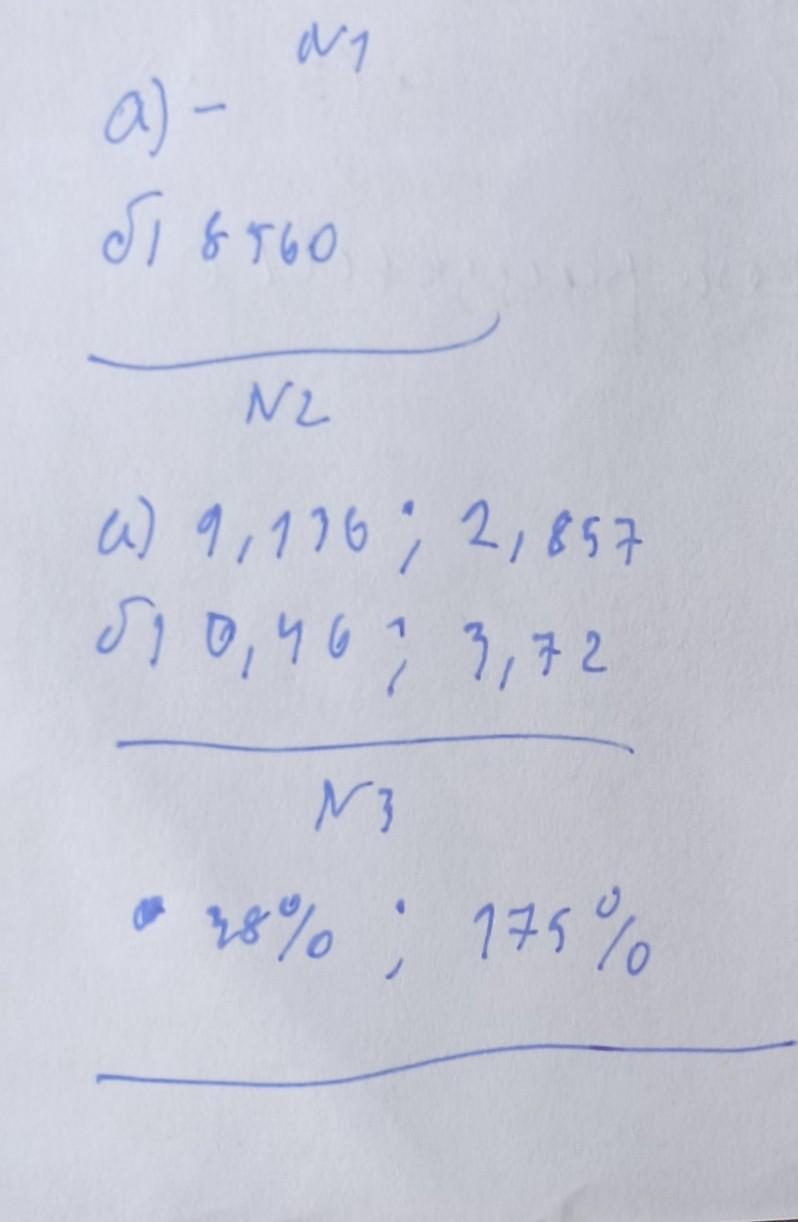 N1
а) -
б) 8560
N2
а) 9,136; 2,857
б) 0,46; 3,72
N3
38%; 175%